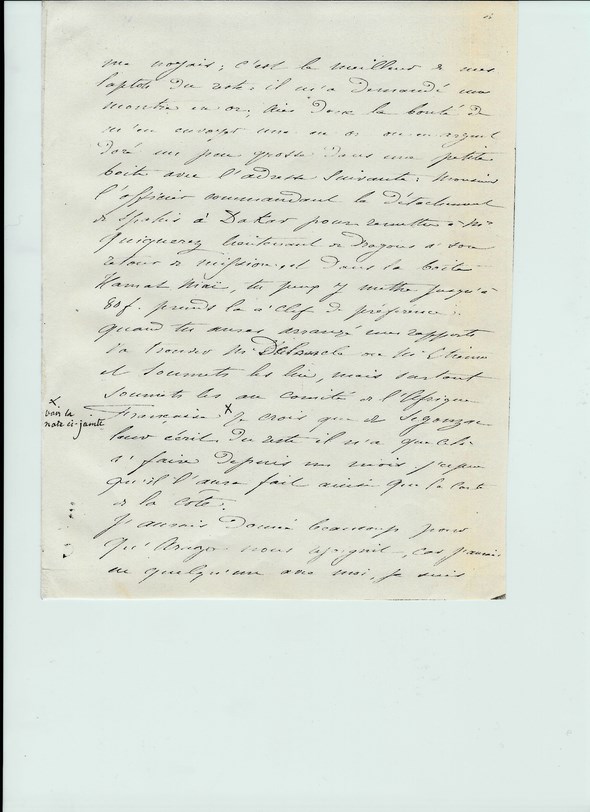 me noyais ; c'est le meilleur de mes
laptots du reste ; il m'a demandé une
montre en or, aies donc la bonté de
m'en envoyer une en or ou en argent
doré un peu grosse dans une petite
boite avec l'adresse suivante : Monsieur
l'officier commandant le Détachement
de Spahis à Dakar pour remettre à Mr
Quiquerez lieutenant de Dragons à son
retour de mission, et dans la boite
Hamat , tu peux y mettre jusqu'à
80f. prends la à clef de préférence.
quand tu auras arrangé mes rapports
va trouver Mr ou Mr Etienne
et soumets les lui, mais surtout
soumets les au comité de l'Afrique
Française X Je crois que de Segonzac
leur écrit. Du reste il n'a que cela
à faire depuis un mois j'espère
qu'il l'aura fait ainsi que la carte
de la côte.
J'aurais donné beaucoup pour
qu'Arago nous rejoignit, car j'aurais
eu quelqu'un avec moi, je suis
X
voir la
note ci-jointe